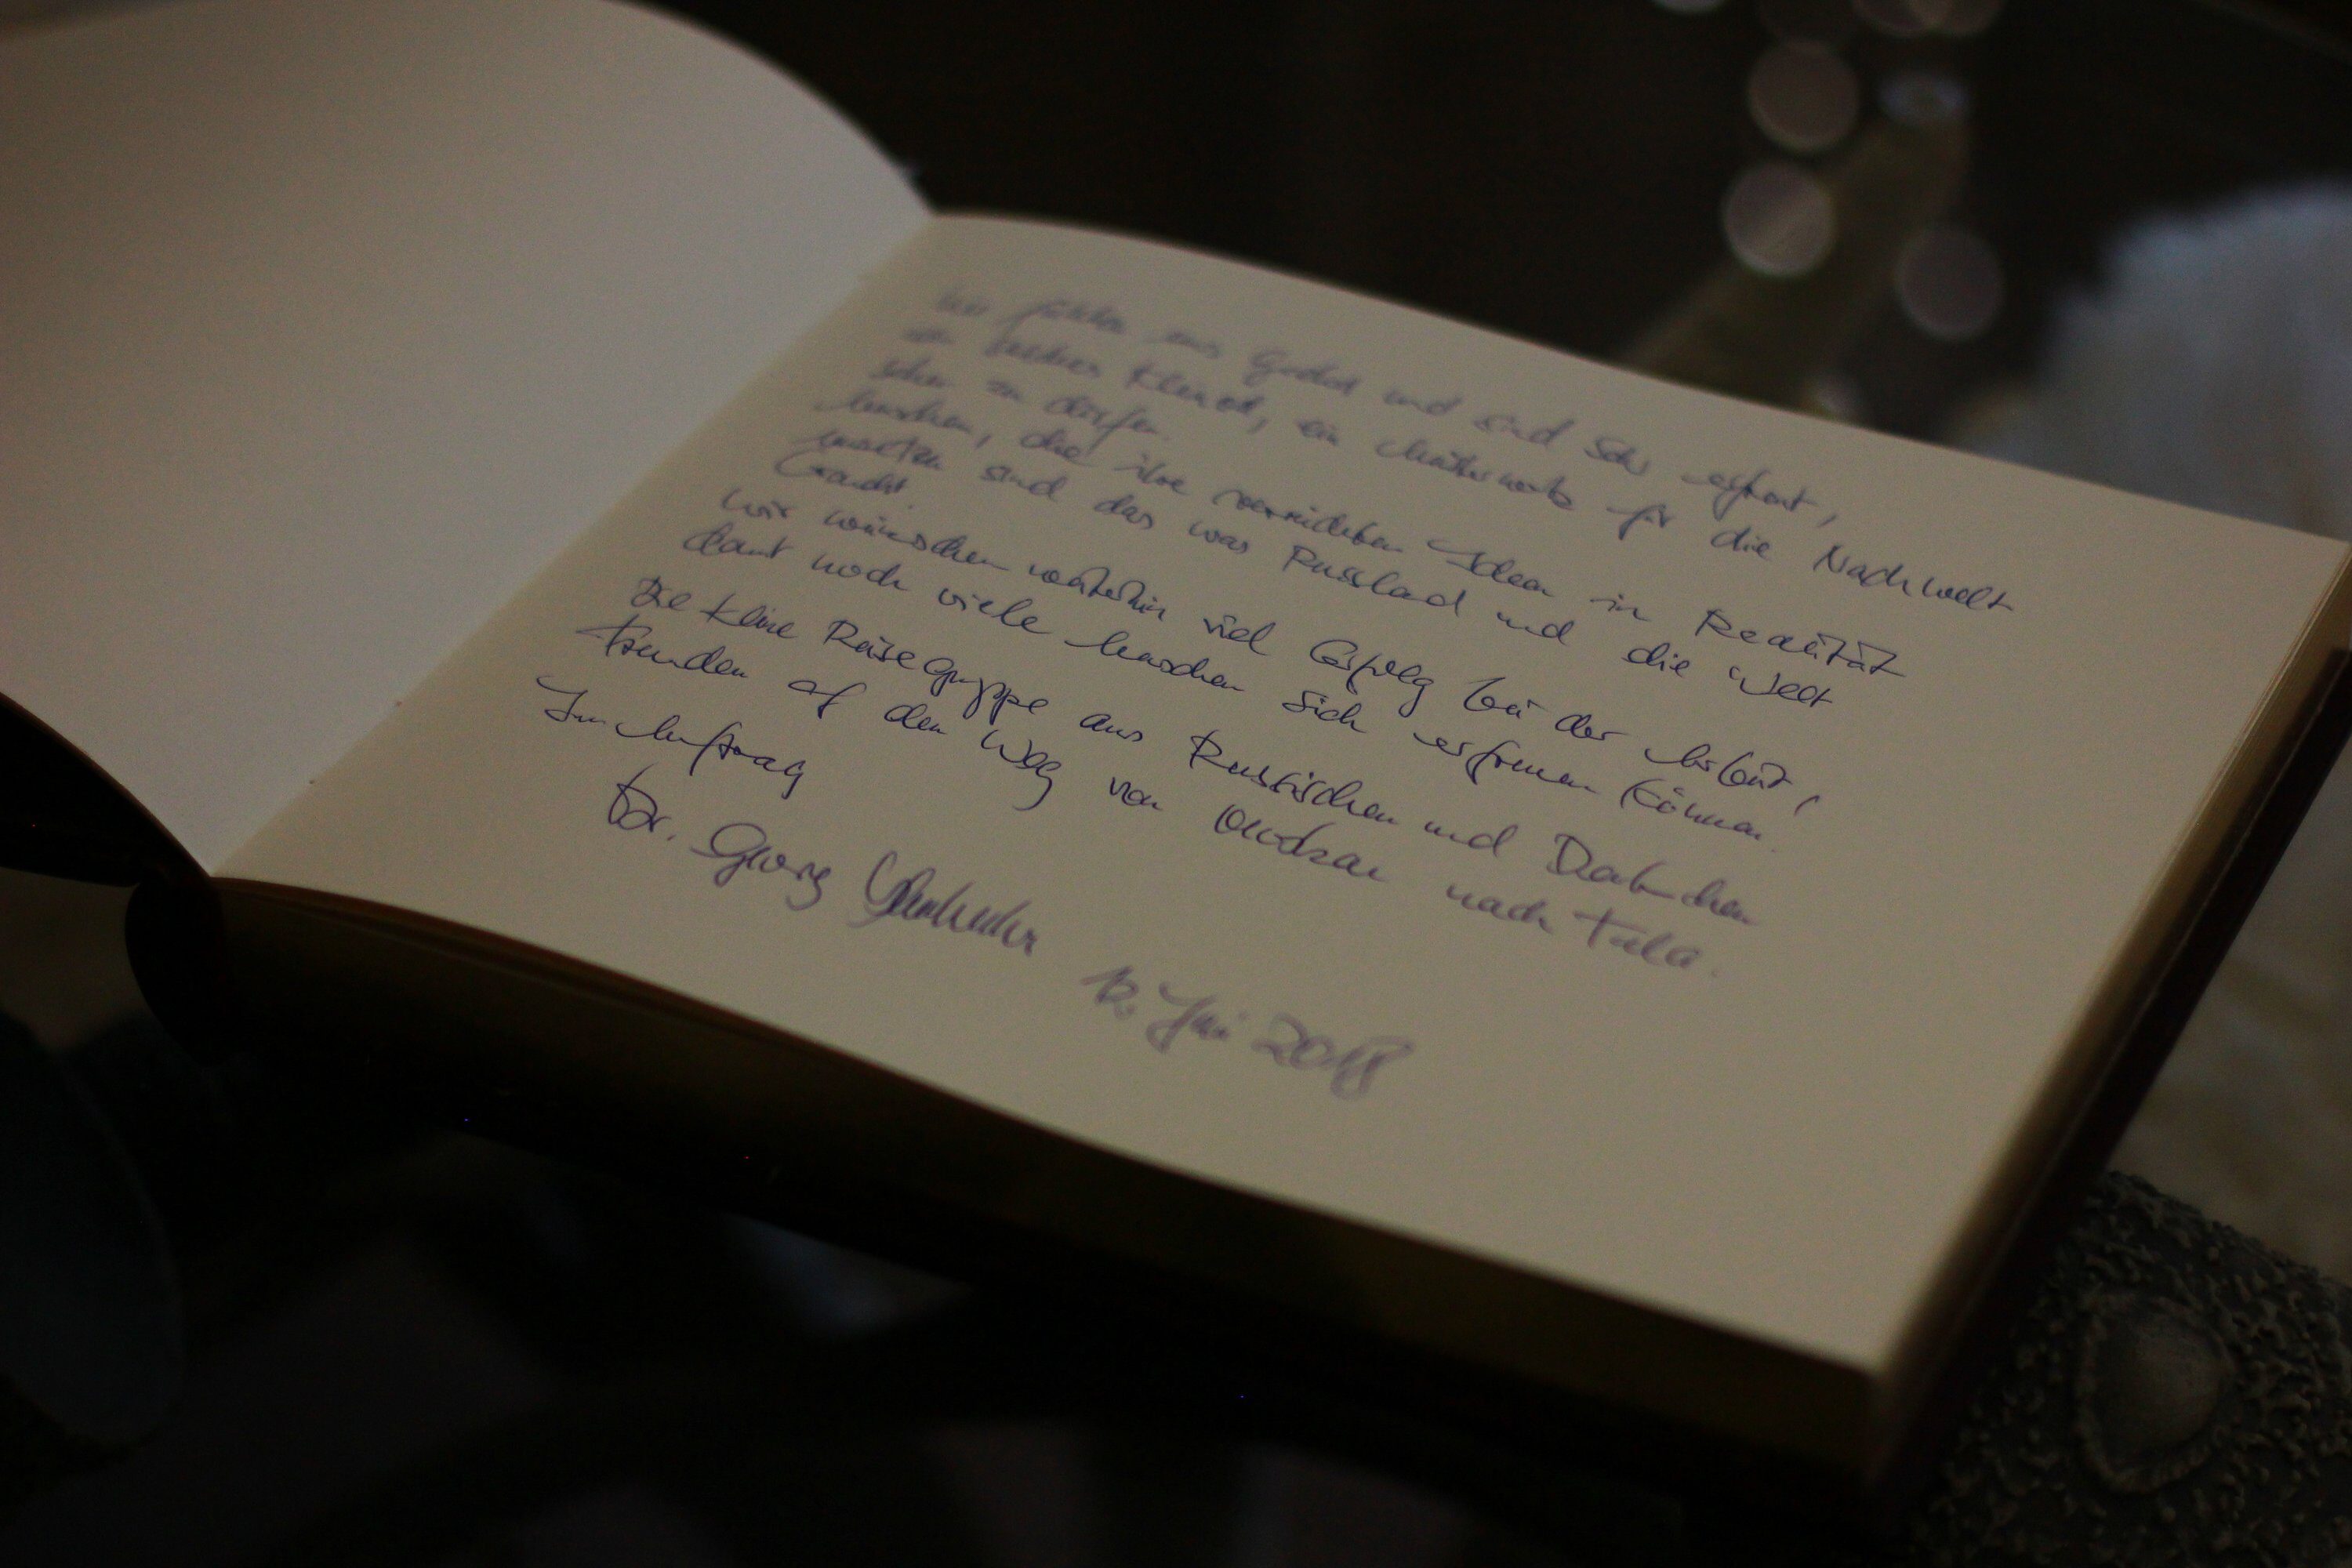 wir fühlen uns geehrt und sind sehr erfreut,
ein Kleinod, ein für die Nachwelt
sehen zu dürfen.
Menschen, die ihre verrückten Ideen in Realität
umsetzen sind das was Russland und die Welt
braucht.
Wir wünschen weiterhin viel Erfolg bei der Arbeit,
damit noch viele Menschen sich erfreuen können.
Die kleine Reisegruppe aus Russischen und Deutschen
Freunden auf dem Weg von Moskau nach Tula.
Im Auftrag
Dr. Georg
2018